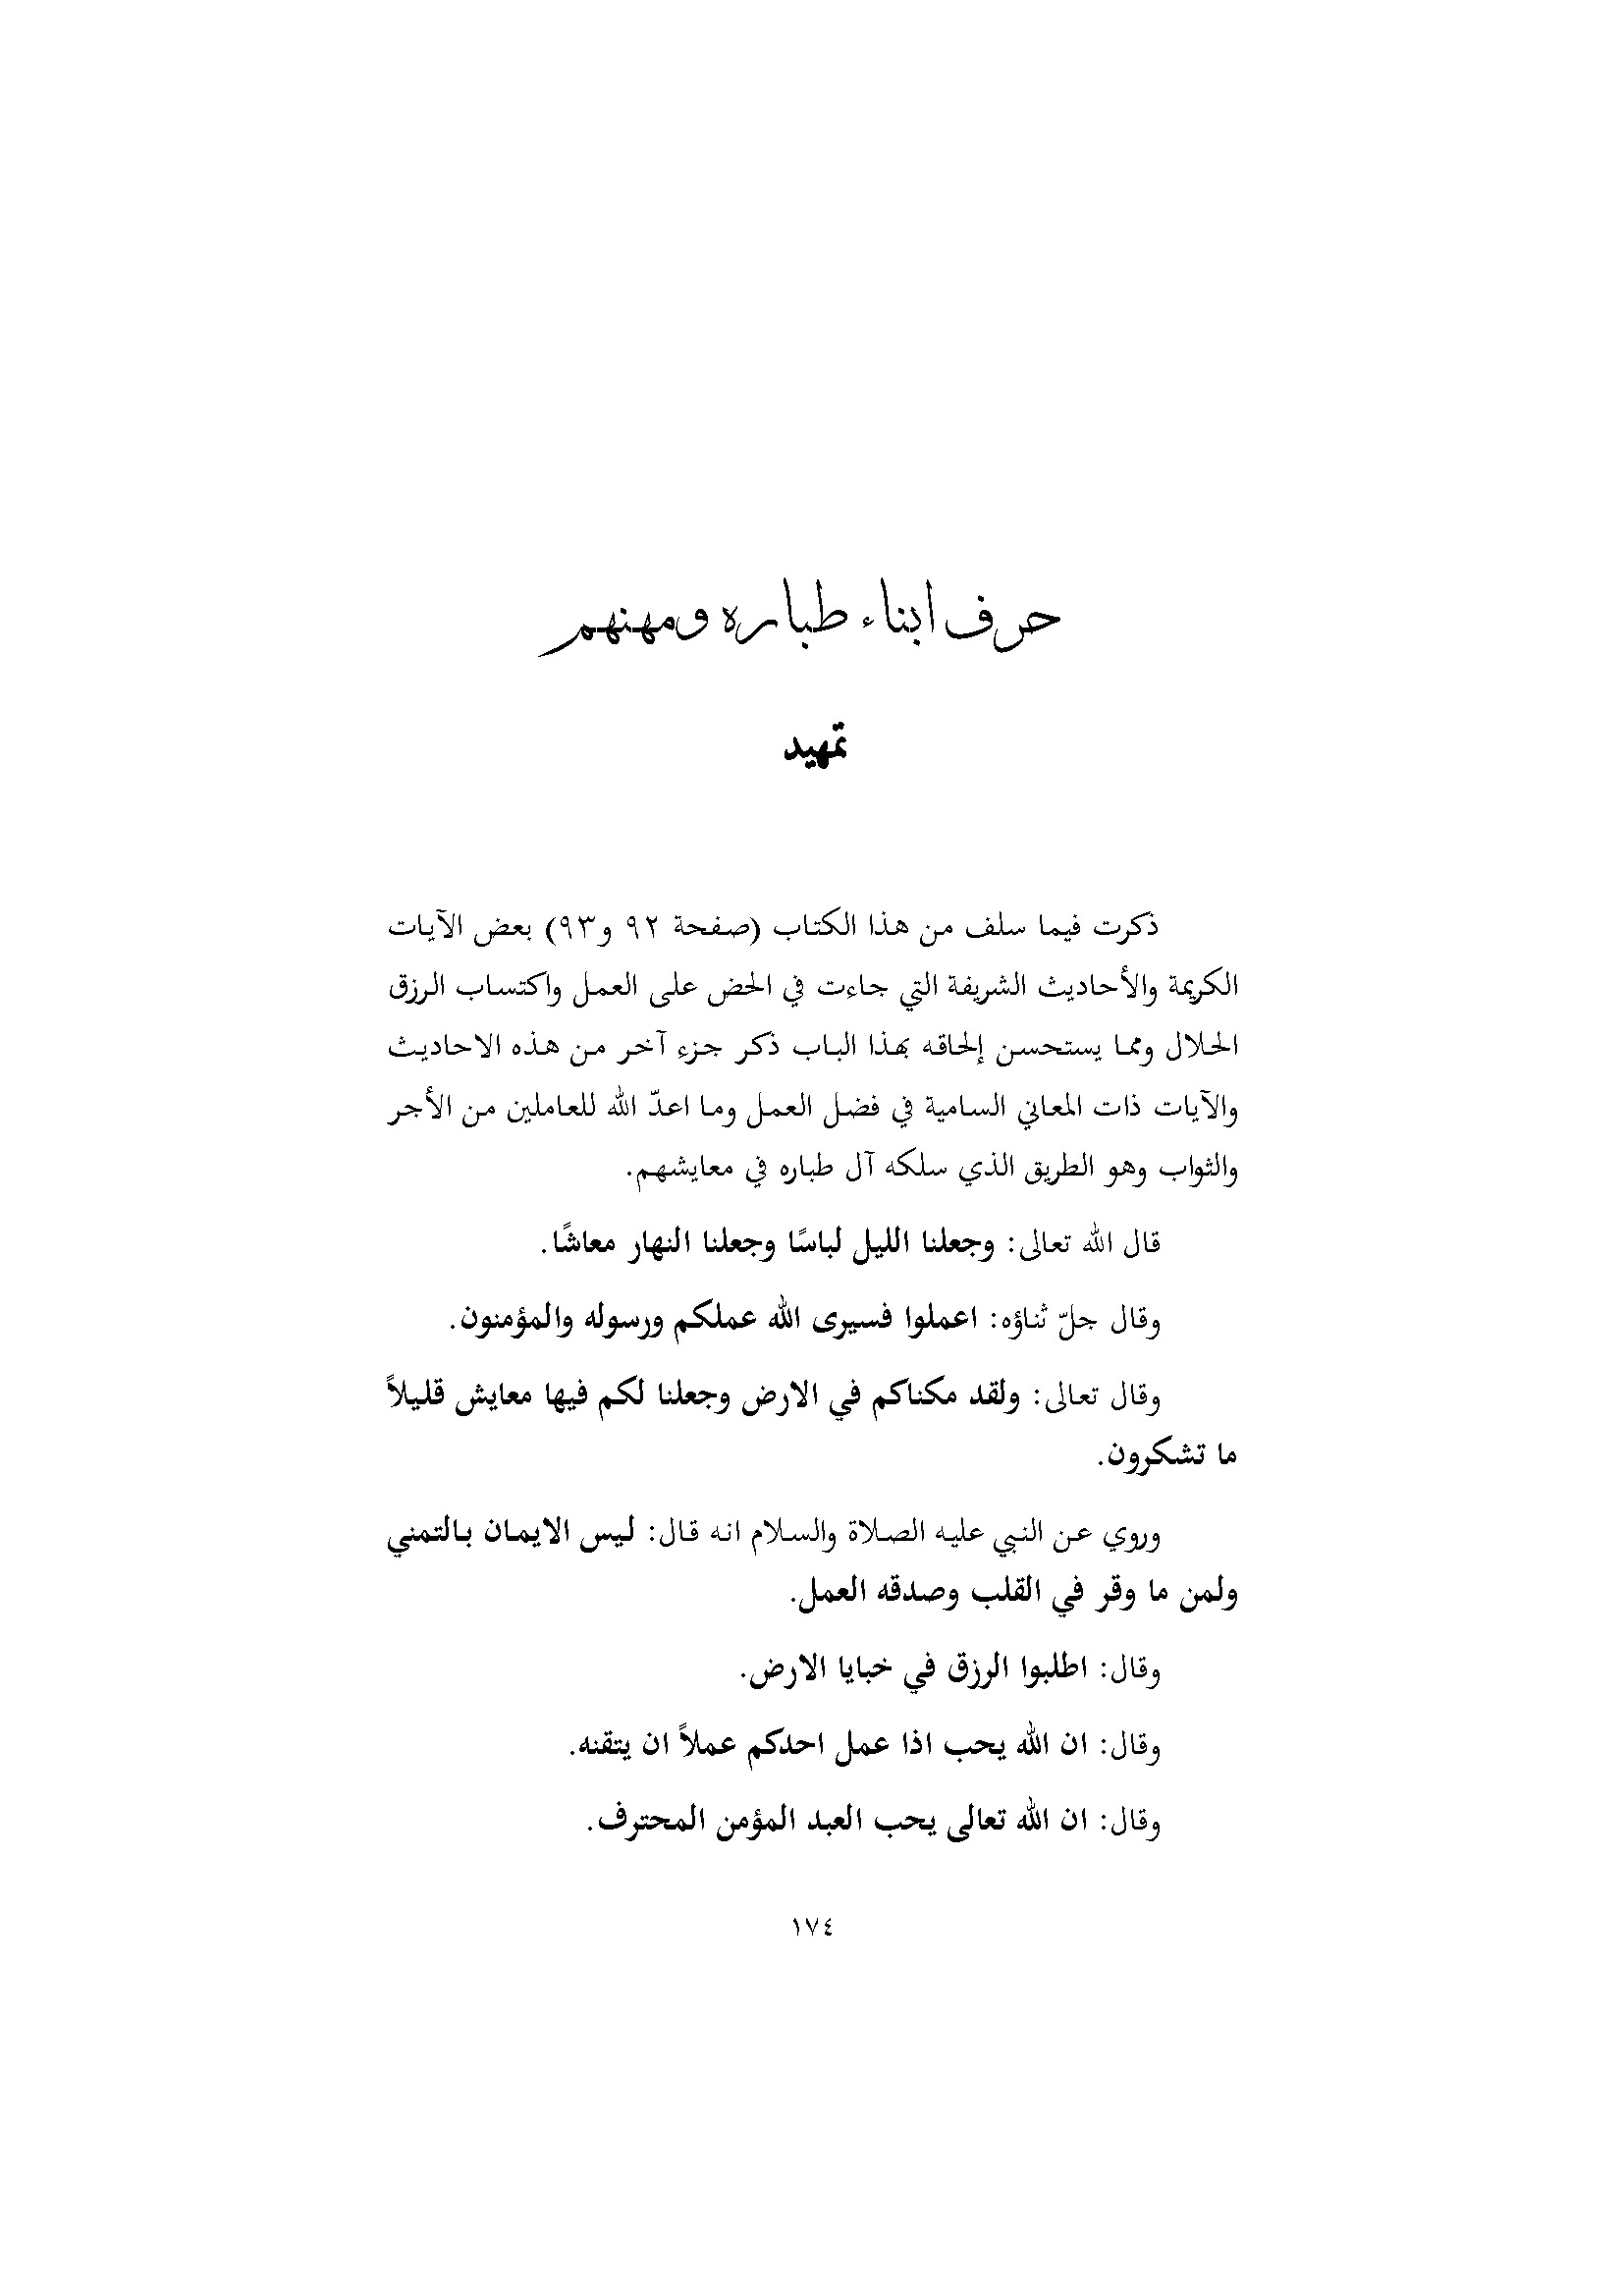 حرف ابناء طباره ومهنهم
تمهيد
ذكرت فيما سلف من هذا الكتاب (صفحة ٩٢ و٩٣) بعض الآيات
الكريمة والأحاديث الشريفة التي جاءت في الحض على العمل واكتساب الرزق
الحلال ومما يستحسن إلحاقه بهذا الباب ذكر جزء آخر من هذه الاحاديث
والآيات ذات المعاني السامية في فضل العمل وما اعدّ الله للعاملين من الأجر
والثواب وهو الطريق الذي سلكه آل طباره في معايشهم.
قال الله تعالى: وجعلنا الليل لباسًا وجعلنا النهار معاشًا.
وقال جلّ ثناؤه: اعملوا فسيرى الله عملكم ورسوله والمؤمنون.
وقال تعالى: ولقد مكناكم في الارض وجعلنا لكم فيها معايش قليلاً
ما تشكرون.
وروي عن النبي عليه الصلاة والسلام انه قال: ليس الايمان بالتمني
ولمن ما وقر في القلب وصدقه العمل.
وقال: اطلبوا الرزق في خبايا الارض.
وقال: ان الله يحب اذا عمل احدكم عملاً ان يتقنه.
وقال: ان الله تعالى يحب العبد المؤمن المحترف.
١٧٤